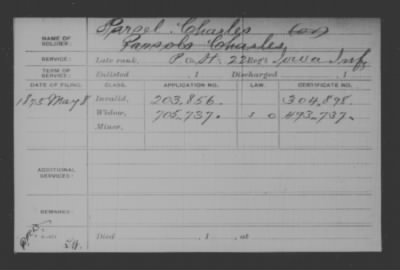 Parsel Charles
NAME OF SOLDIER:
Charles
SERVICE:
Late rank, Pvt. 22 Regt Iowa Inf
TERM OF SERVICE:
Enlisted , 1 Discharged , 1
DATE OF FILING. CLASS. APPLICATION NO. LAW. CERTIFICATE NO.
1875 May 8 Invalid, 203,856. 304,898.
Widow, 705,737. 493,737.
Minor,
ADDITIONAL SERVICES:
REMARKS:
Died , 1 , at